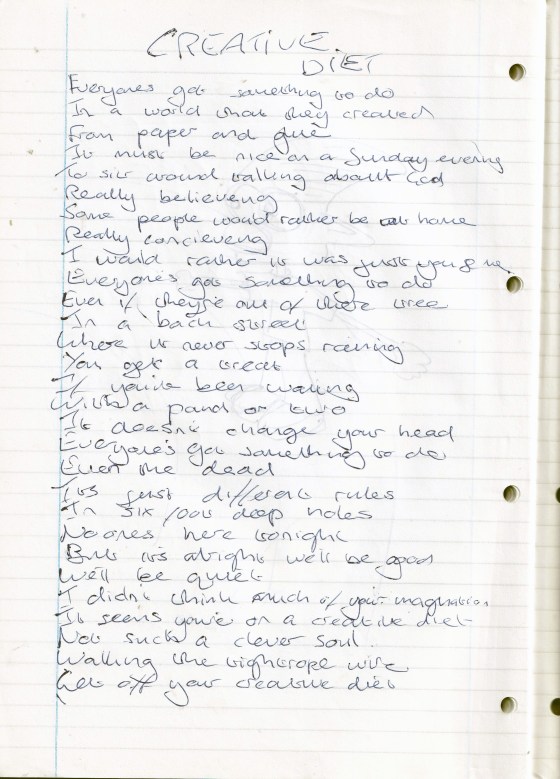 CREATIVE
DIET
Everyone's got something to do
In a world that they created
From paper and glue
It must be nice on a Sunday evening
To sit around talking about God
Really believeng
Some people would rather be at home
Really concieveng
I would rather it was just you & me
Everyone's got something to do
Even if they're out of there tree
In a back street
Where it never stops raining
You get a treat
If you've been waiting
With a pand or two
It doesn't change your head
Everyone's got something to do
Even the dead
It's just different rules
In six foot deep holes
No ones here tonight
But it's alright we'll be good
We'll be quiet
I didn't think much of your imagination
It seems you're on a creative diet
Not such a clever soul
Walking the tightrope wire
Get off your creative diet